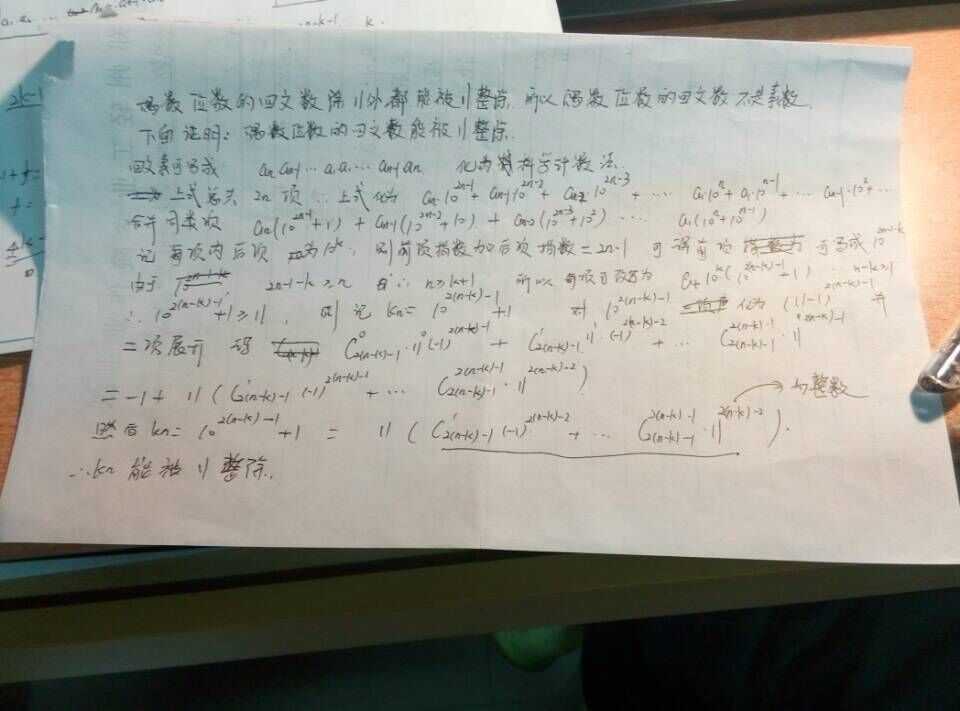 偶数位数的回文数除11外都能被11整除,所以偶数位数的回文数不是素数.
下面证明:偶数位数的回文数能被11整除.
回文数可写成 aₙaₙ₋₁…a₁a₁…aₙ₋₁aₙ 化为科学计数法.
上式总共 2n 项 ∴上式化为 aₙ·10^{2n-1}+aₙ₋₁·10^{2n-2}+aₙ₋₂·10^{2n-3}+… a₁·10^{n}+a₁·10^{n-1}+…aₙ₋₁·10^{2}+…
合并同类项 aₙ(10^{2n-1}+1)+aₙ₋₁(10^{2n-2}+10)+aₙ₋₂(10^{2n-3}+10^{2})… a₁(10^{n}+10^{n-1})
记每项内后项为10^{k},则前项指数加后项指数=2n-1 可得前项可写成10^{2n-1-k}
由于 2n-1-k≥n 且∴n≥k+1 所以每项可改写为 10^{k}(10^{2(n-k)-1}+1) ∵n-k≥1
∴10^{2(n-k)-1}+1≥11, 则记kₙ=10^{2(n-k)-1}+1 对10^{2(n-k)-1} 化为(11-1)^{2(n-k)-1} 并
二项展开 得 C⁰_{2(n-k)-1}·11⁰(-1)^{2(n-k)-1}+C¹_{2(n-k)-1}·11¹·(-1)^{2(n-k)-2}+… C^{2(n-k)-1}_{2(n-k)-1}·11^{2(n-k)-1}
=-1+11(C¹_{2(n-k)-1}(-1)^{2(n-k)-2}+… C^{2(n-k)-1}_{2(n-k)-1}·11^{2(n-k)-2})
然后kₙ=10^{2(n-k)-1}+1=11(C¹_{2(n-k)-1}(-1)^{2(n-k)-2}+… C^{2(n-k)-1}_{2(n-k)-1}·11^{2(n-k)-2}). → 为整数
∴kₙ能被11整除.